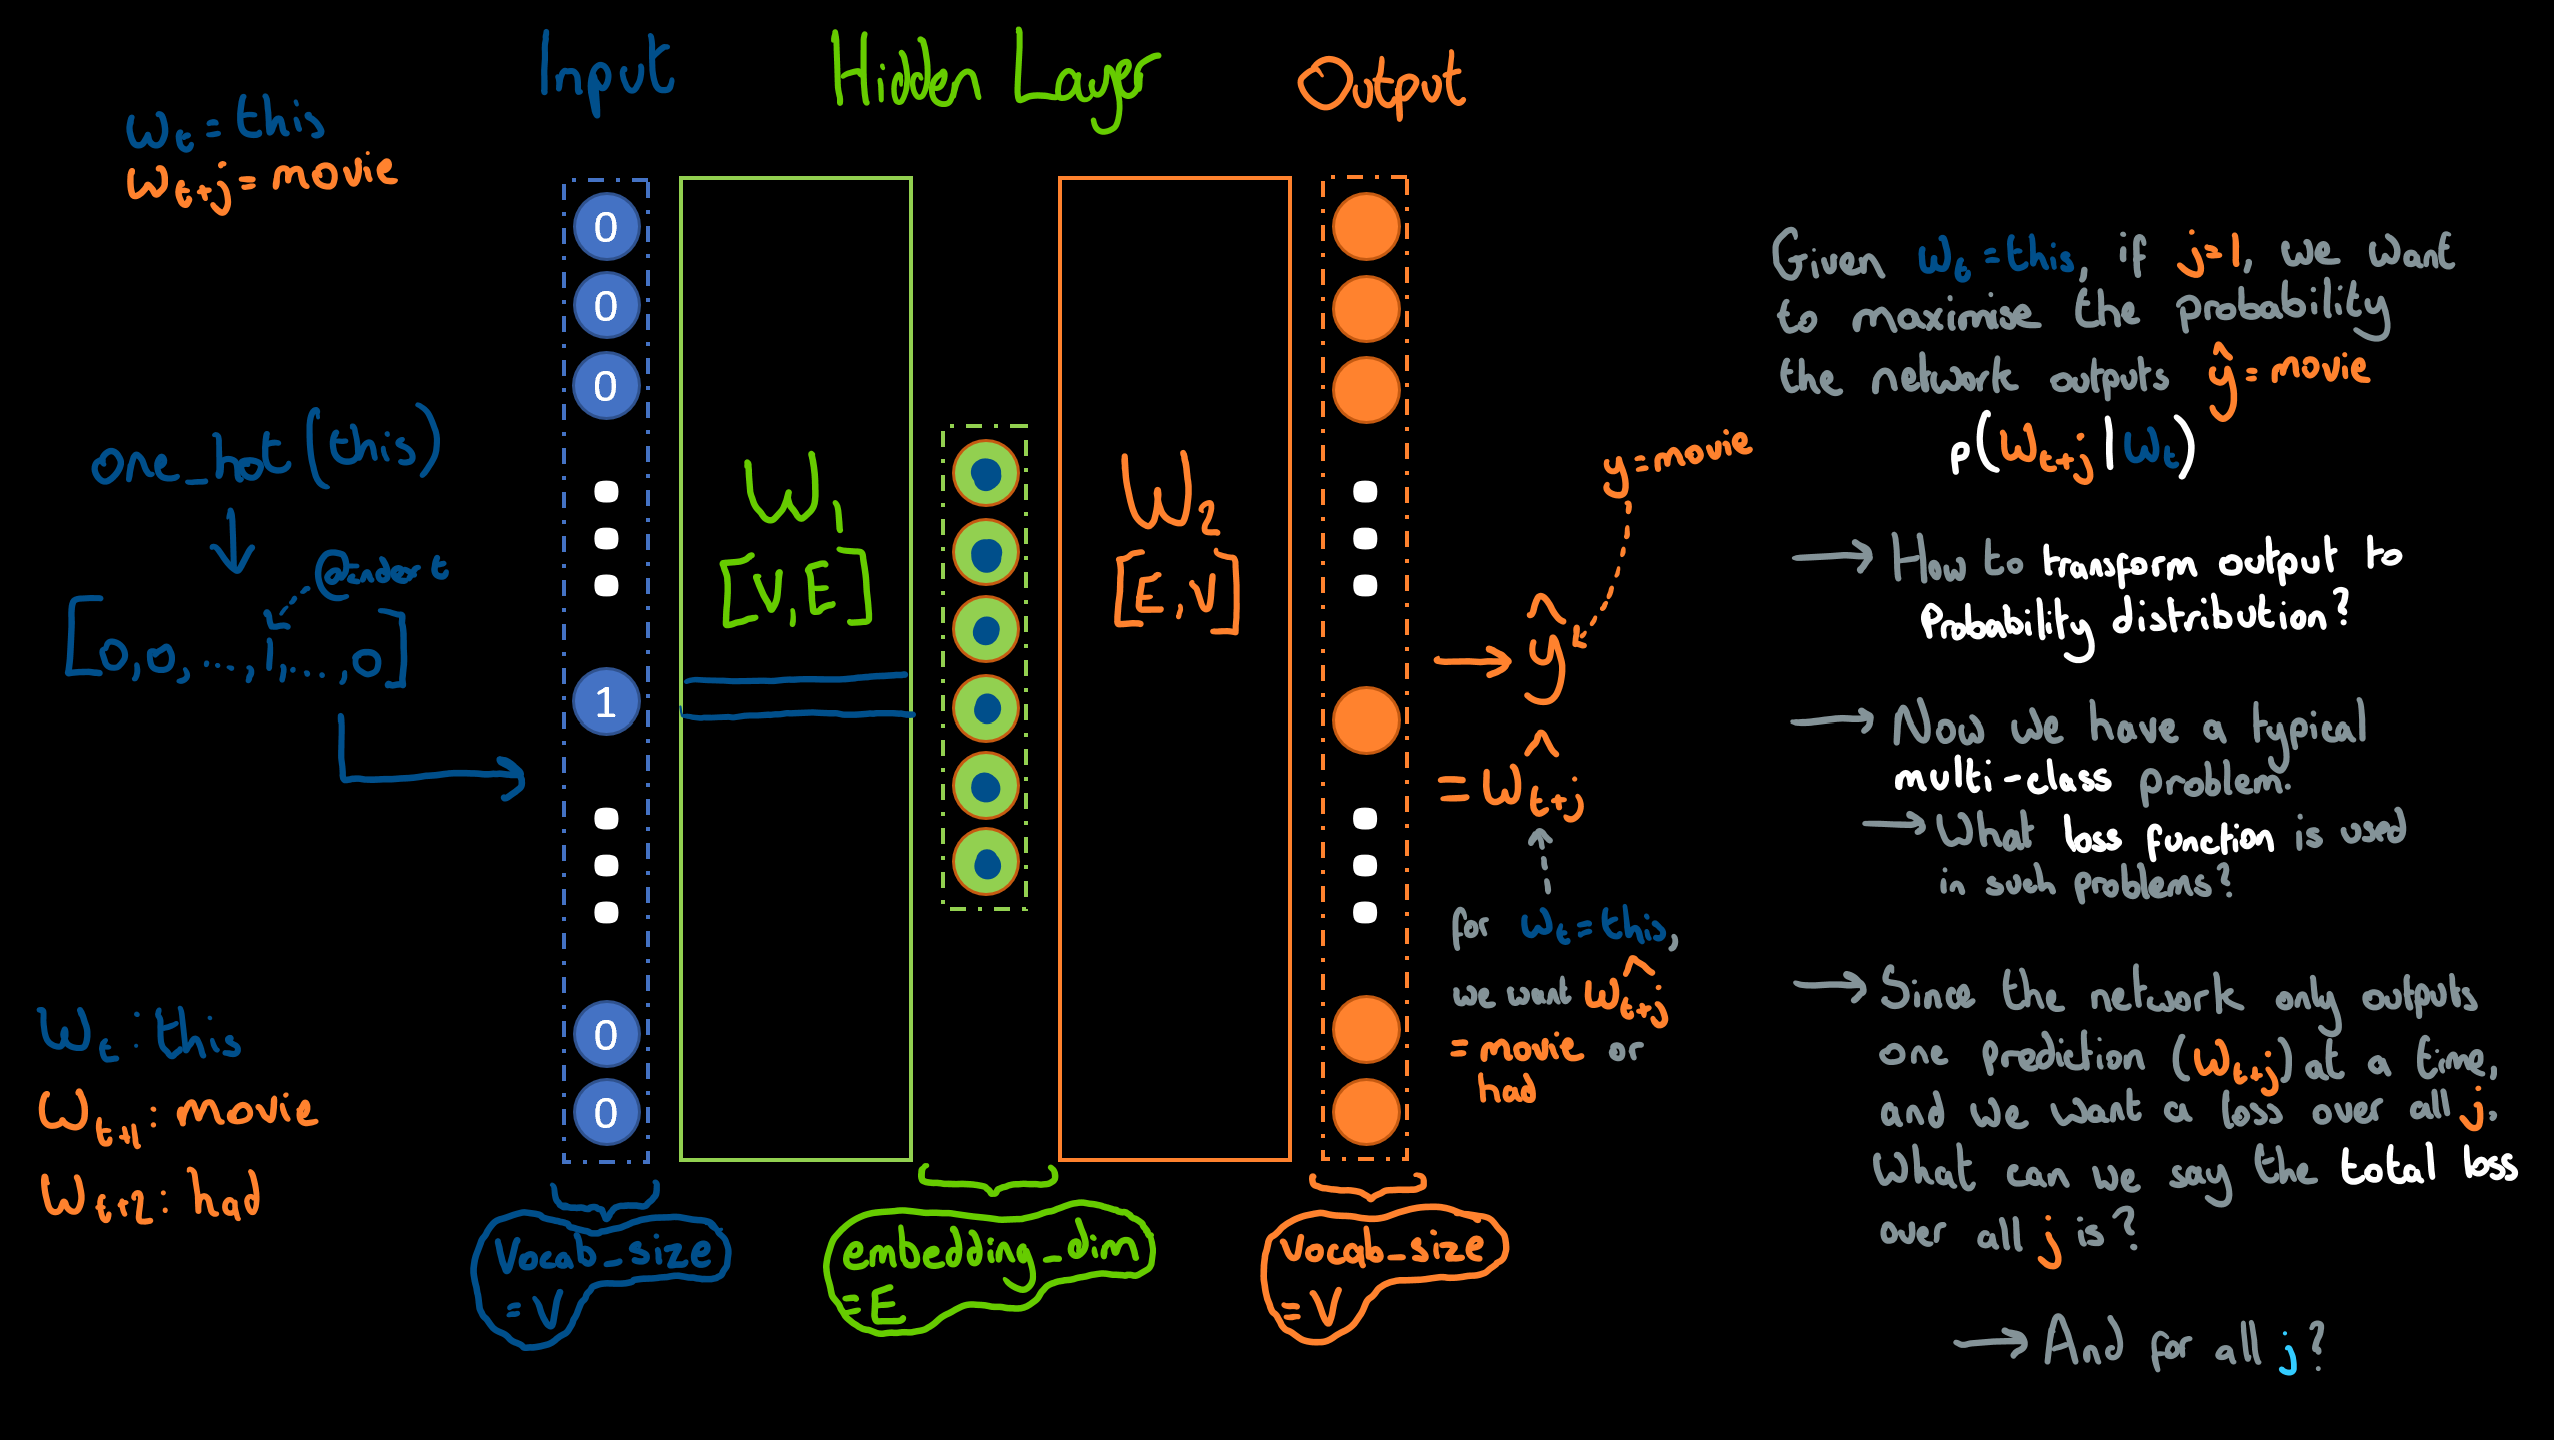 Input
Hidden Layer
Output
w_t = this
w_{t+j} = movie
one_hot(this)
@index t
[0,0,...,1,...,0]
w_t : this
w_{t+1} : movie
w_{t+2} : had
0
0
0
1
0
0
W_1
[V,E]
W_2
[E,V]
Vocab_size
= V
embedding_dim
= E
Vocab_size
= V
y = movie
→ ŷ
= ŵ_{t+j}
for w_t = this,
we want ŵ_{t+j}
= movie or
had
Given w_t = this, if j=1, we want
to maximise the probability
the network outputs ŷ = movie
p(w_{t+j} | w_t)
→ How to transform output to
Probability distribution?
→ Now we have a typical
multi-class problem.
→ What loss function is used
in such problems?
→ Since the network only outputs
one prediction (w_{t+j}) at a time,
and we want a loss over all j.
What can we say the total loss
over all j is?
→ And for all j?